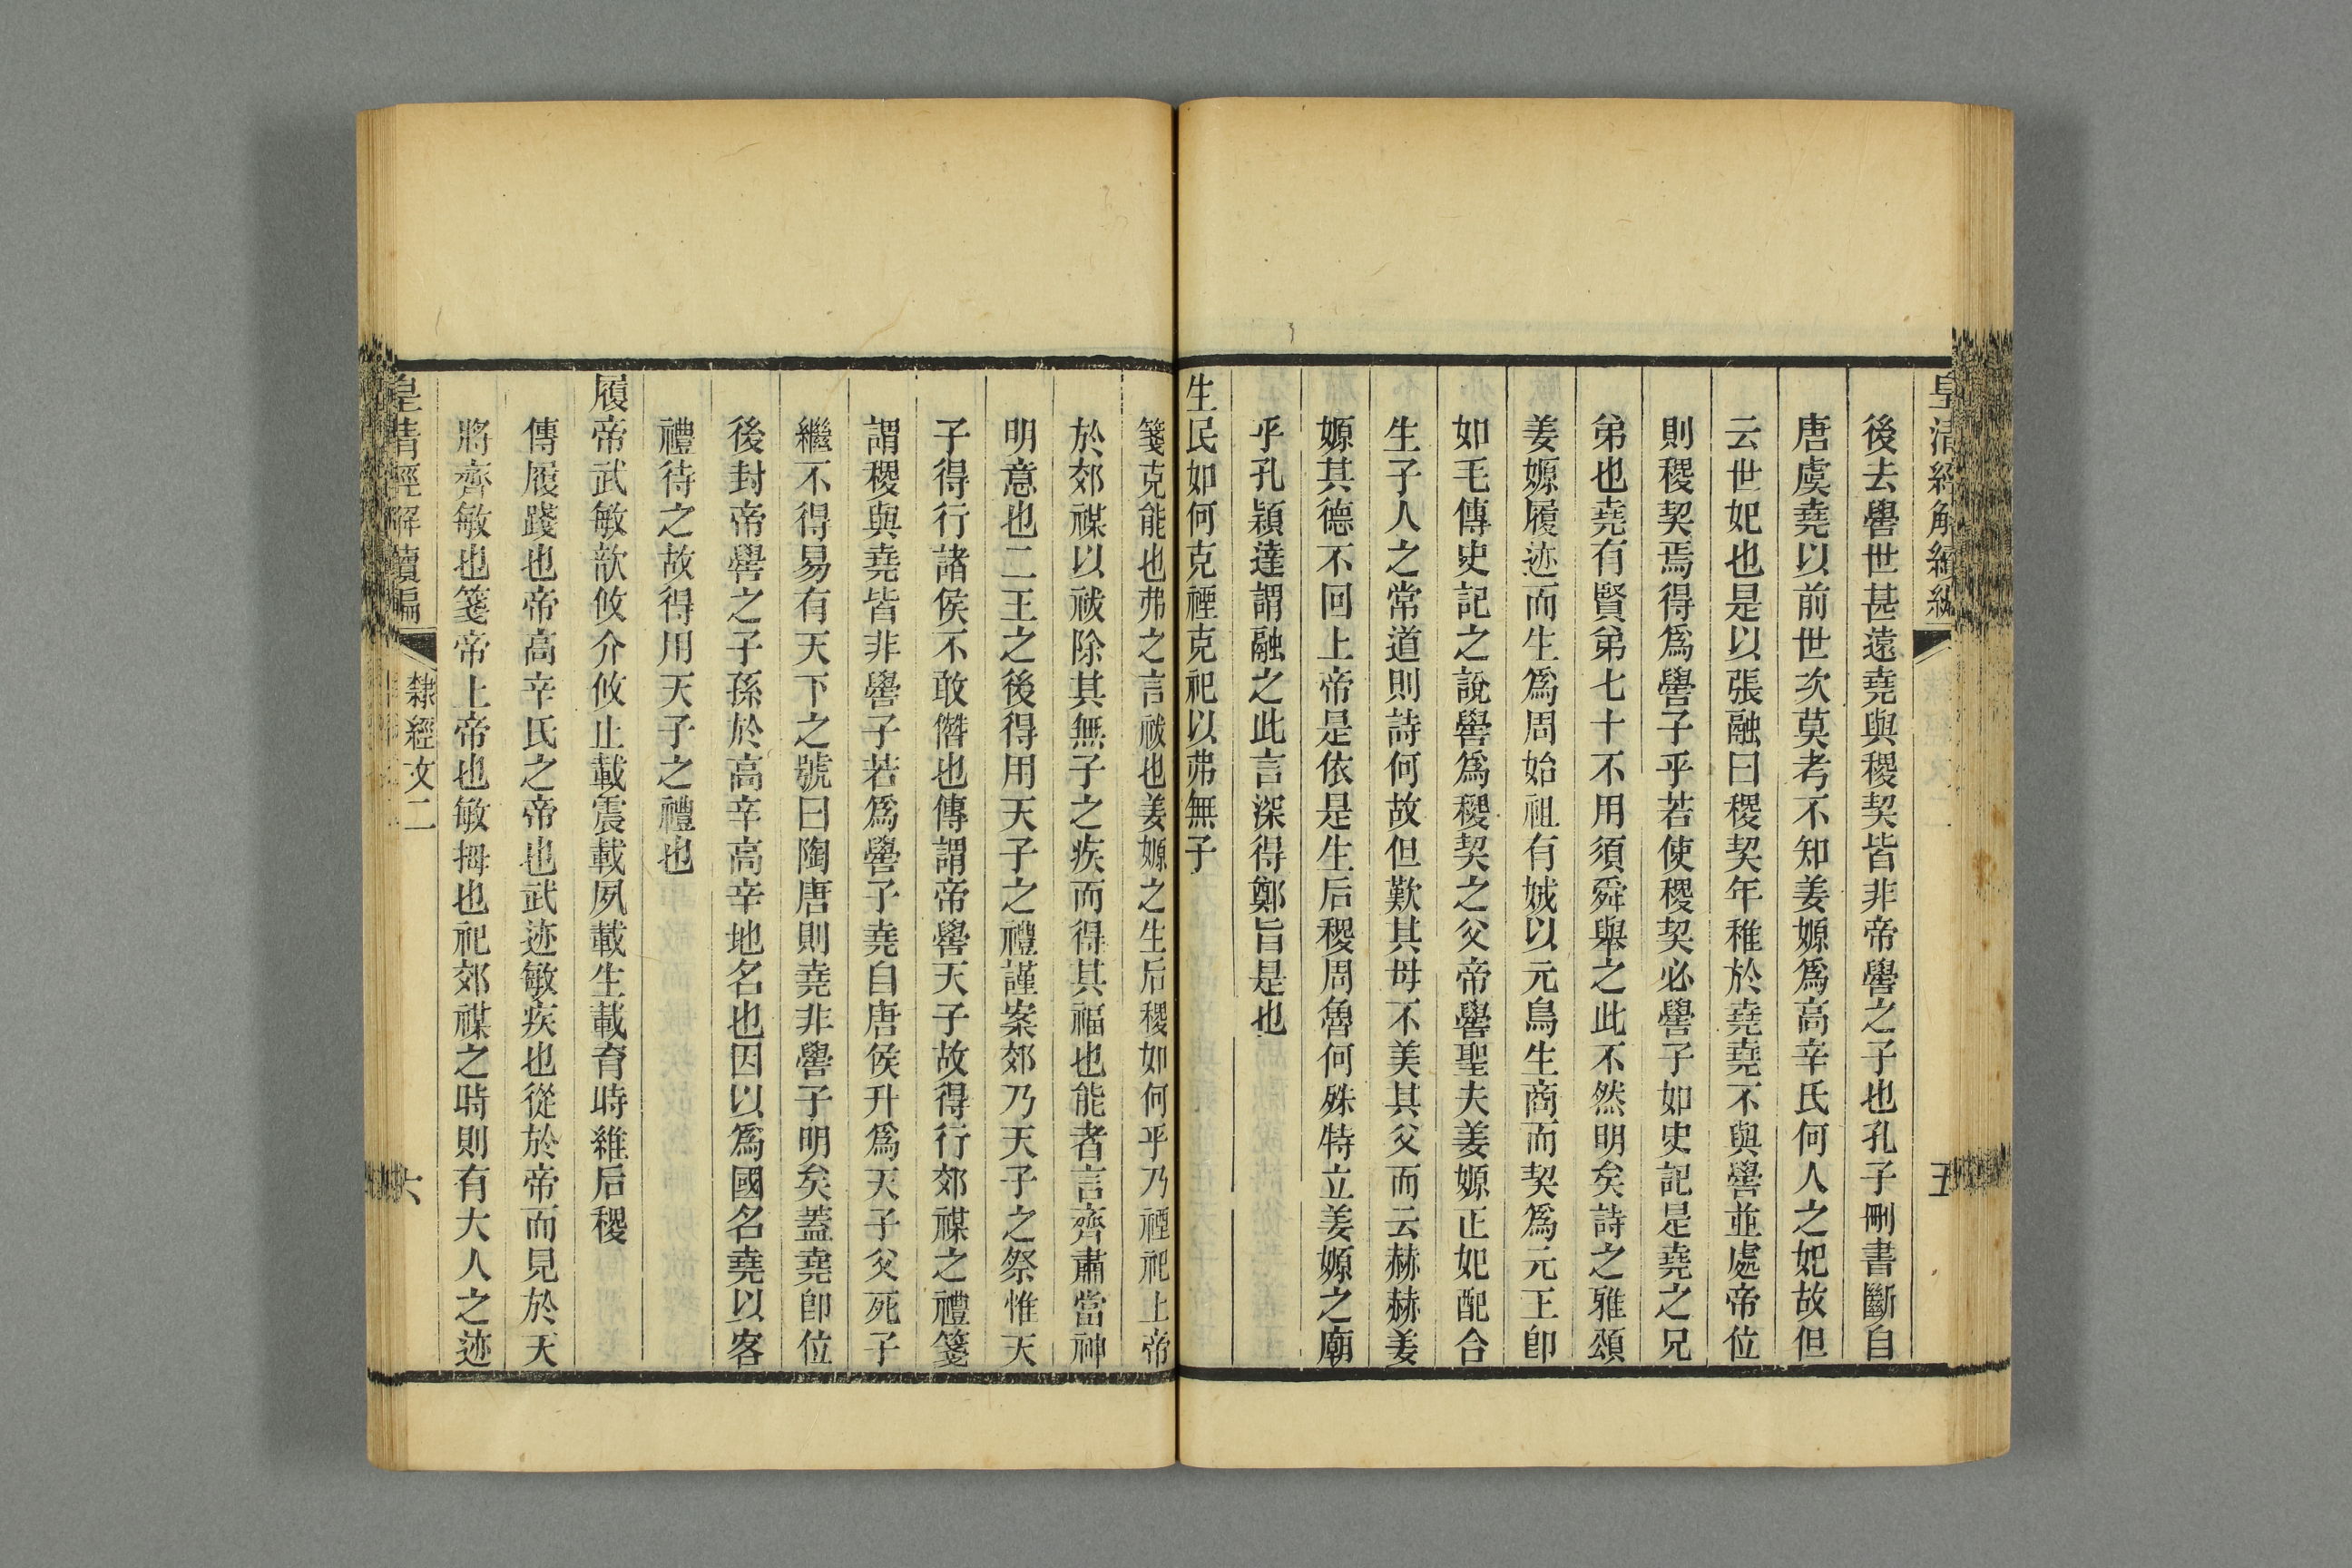 皇清經解續編
五
後去嚳世甚遠堯與稷契皆非帝嚳之子也孔子刪書斷自
唐虞堯以前世次莫考不知姜嫄爲高辛氏何人之妃故但
云世妃也是以張融曰稷契年稚於堯堯不與嚳並處帝位
則稷契焉得爲嚳子乎若使稷契必嚳子如史記是堯之兄
弟也堯有賢弟七十不用須舜舉之此不然明矣詩之雅頌
姜嫄履迹而生爲周始祖有娀以元鳥生商而契爲元王卽
如毛傳史記之說嚳爲稷契之父帝嚳聖夫姜嫄正妃配合
生子人之常道則詩何故但歎其母不美其父而云赫赫姜
嫄其德不回上帝是依是生后稷周魯何殊特立姜嫄之廟
乎孔穎達謂融之此言深得鄭旨是也
生民如何克禋克祀以弗無子
箋克能也弗之言祓也姜嫄之生后稷如何乎乃禋祀上帝
於郊禖以祓除其無子之疾而得其福也能者言齊肅當神
明意也二王之後得用天子之禮謹案郊乃天子之祭惟天
子得行諸侯不敢僭也傳謂帝嚳天子故得行郊禖之禮箋
謂稷與堯皆非嚳子若爲嚳子堯自唐侯升爲天子父死子
繼不得易有天下之號曰陶唐則堯非嚳子明矣蓋堯卽位
後封帝嚳之子孫於高辛高辛地名也因以爲國名堯以客
禮待之故得用天子之禮也
履帝武敏歆攸介攸止載震載夙載生載育時維后稷
傳履踐也帝高辛氏之帝也武迹敏疾也從於帝而見於天
將齊敏也箋帝上帝也敏拇也祀郊禖之時則有大人之迹
皇清經解續編
隸經文二
六